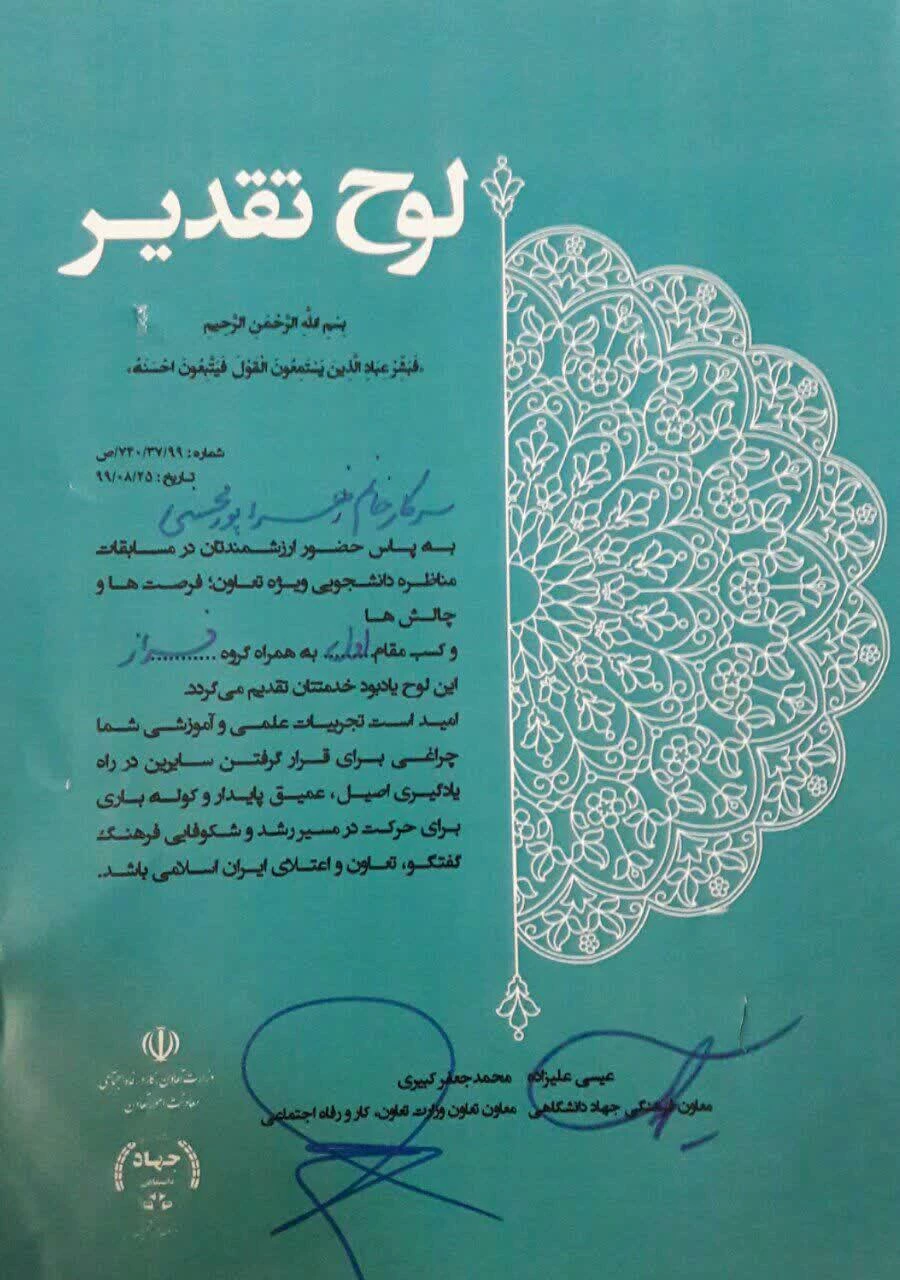 لوح تقدیر
بسم الله الرحمن الرحیم
«فَبَشِّر عِبادِ الَّذینَ یَستَمِعُونَ القَولَ فَیَتَّبِعُونَ اَحسَنَهُ»
شماره: ۷۴۰/۳۷/۹۹/ص
تاریخ: ۹۹/۰۸/۲۵
سرکار خانم زهرا پورمحسنی
به پاس حضور ارزشمندتان در مسابقات
مناظره دانشجویی ویژه تعاون؛ فرصت ها و
چالش ها
و کسب مقام اول به همراه گروه فراز
این لوح یادبود خدمتتان تقدیم می گردد.
امید است تجربیات علمی و آموزشی شما
چراغی برای قرار گرفتن سایرین در راه
یادگیری اصیل، عمیق پایدار و کوله باری
برای حرکت در مسیر رشد و شکوفایی فرهنگ
گفتگو، تعاون و اعتلای ایران اسلامی باشد.
عیسی علیزاده محمدجعفر کبیری
معاون فرهنگی جهاد دانشگاهی معاون تعاون وزارت تعاون، کار و رفاه اجتماعی
وزارت تعاون، کار و رفاه اجتماعی
معاونت امور تعاون
جهاد
دانشگاهی